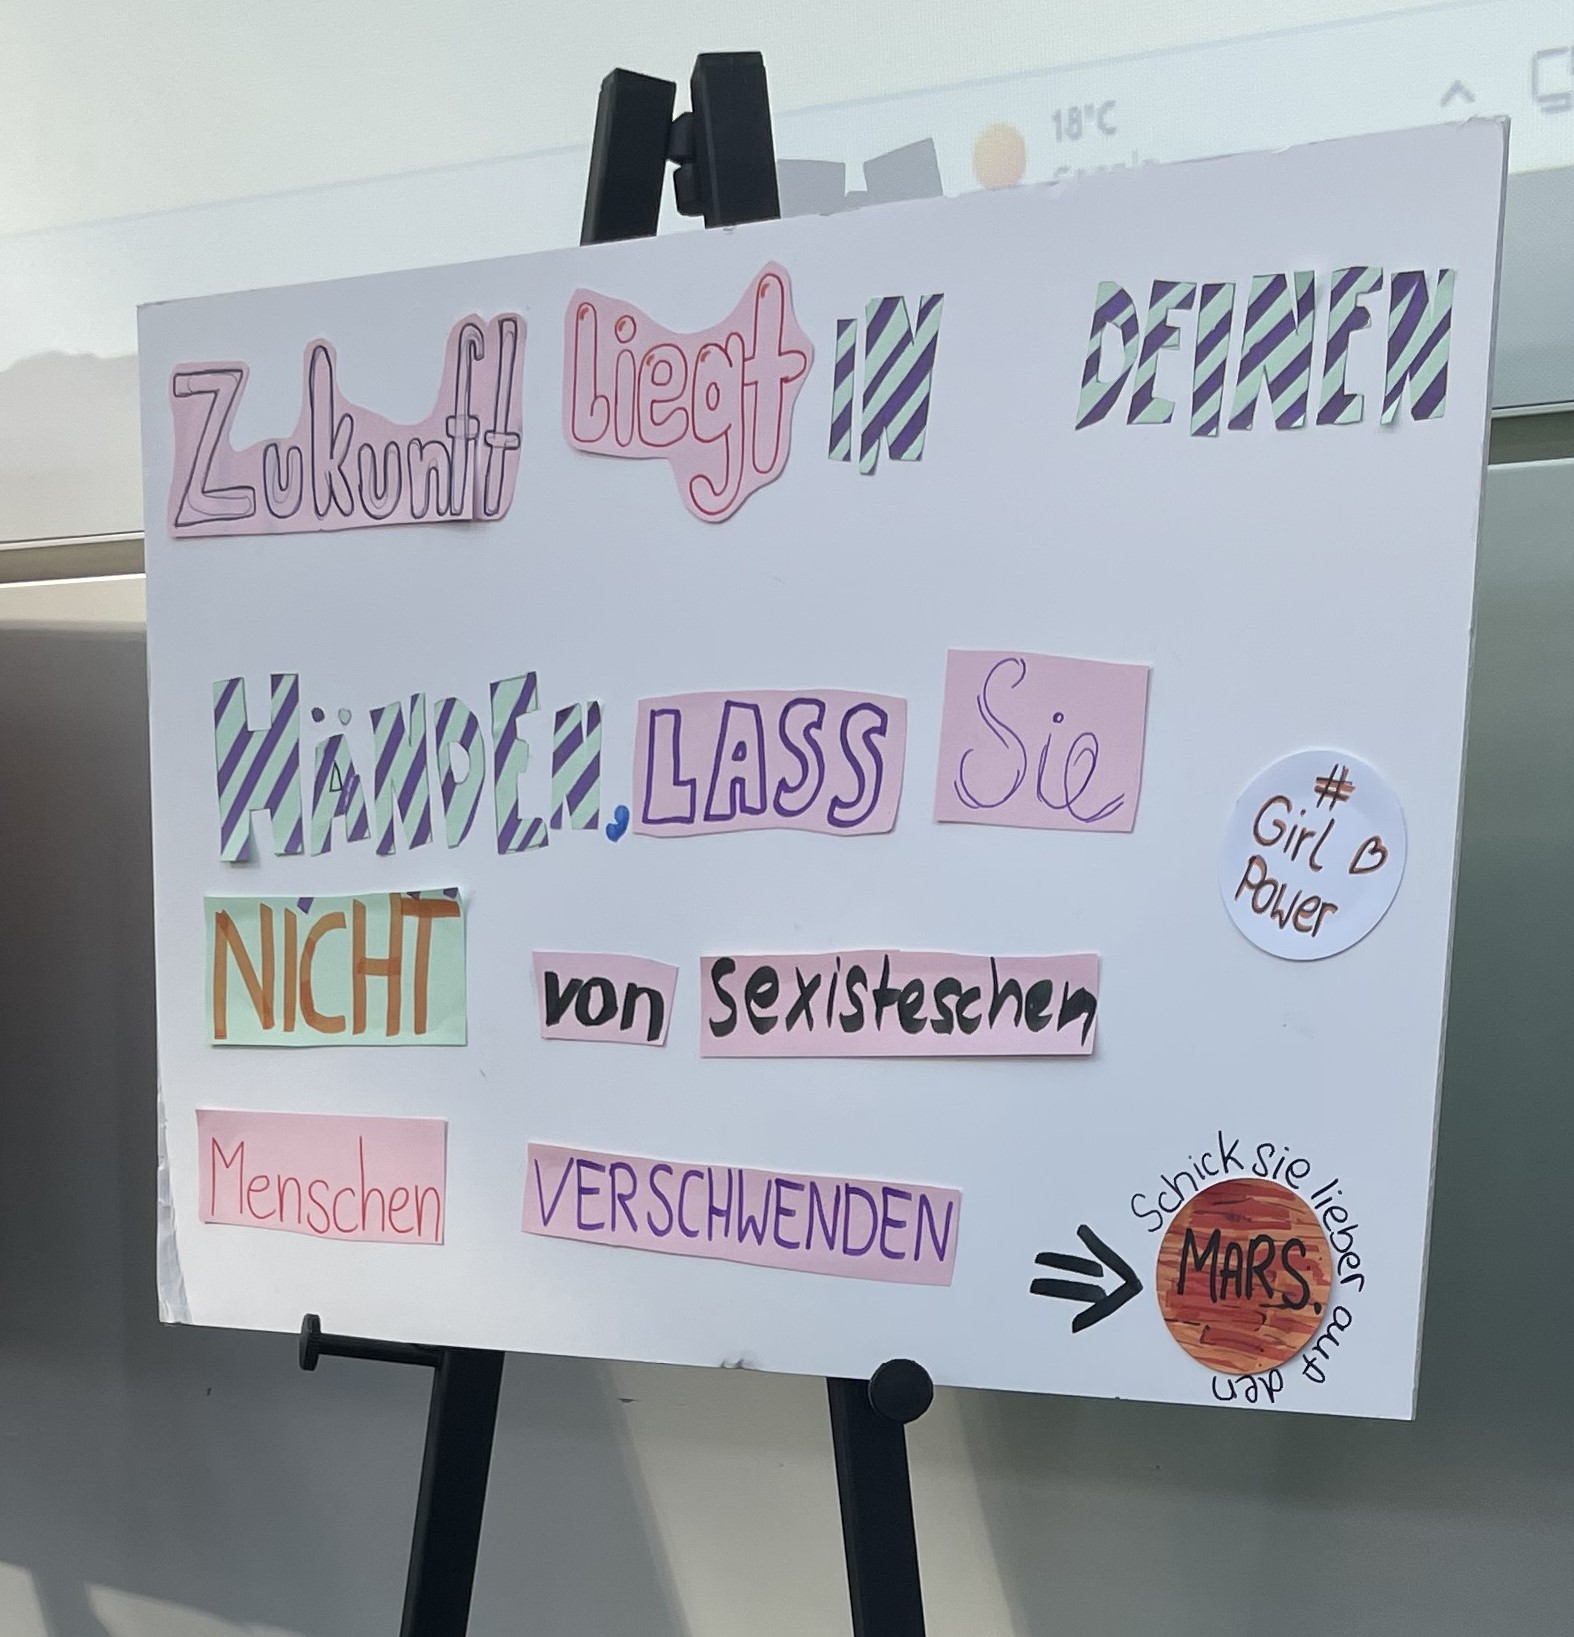 18°C
Zukunft liegt IN DEINEN
HÄNDEN, LASS Sie
#
Girl
Power
NICHT von sexisteschen
Menschen VERSCHWENDEN
Schick sie lieber auf den
MARS.